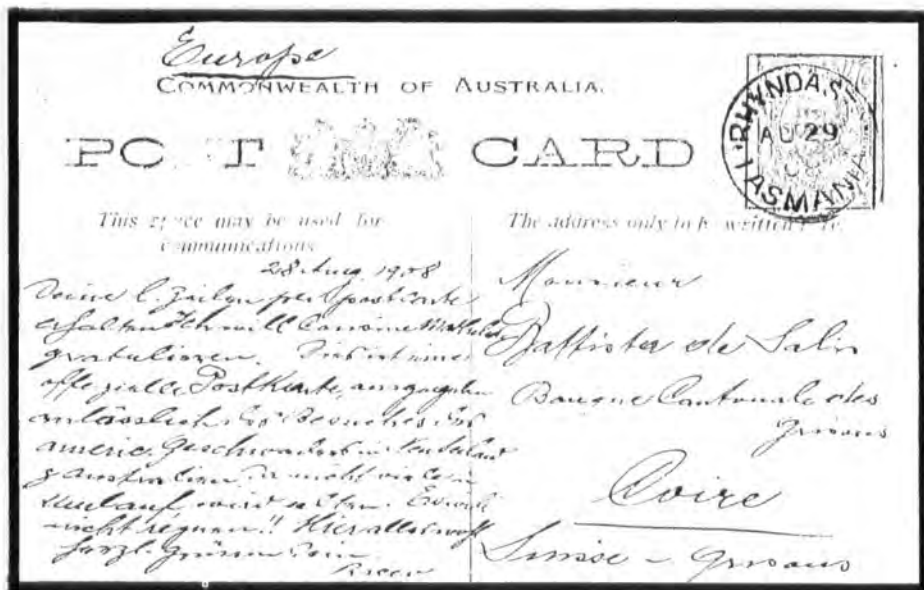 Europe
COMMONWEALTH OF AUSTRALIA.
POST CARD
RHYNDAS
AU 29
08
TASMANIA
This space may be used for
communications
The address only to be written here.
28 Aug. 1908
Deine l. Zeilen per Postkarte
erhalten Ich will
gratulieren. Dies ist eine
offizielle Postkarte, ausgegeben
anlässlich des Besuches des
americ. Geschwaders in Neuseeland
& Australien
Umlauf
nicht regnen!! Hier alles wohl
herzl. Grüsse Dein
Monsieur
Battista de Salis
Banque Cantonale des
Grisons
Coire
Suisse - Grisons